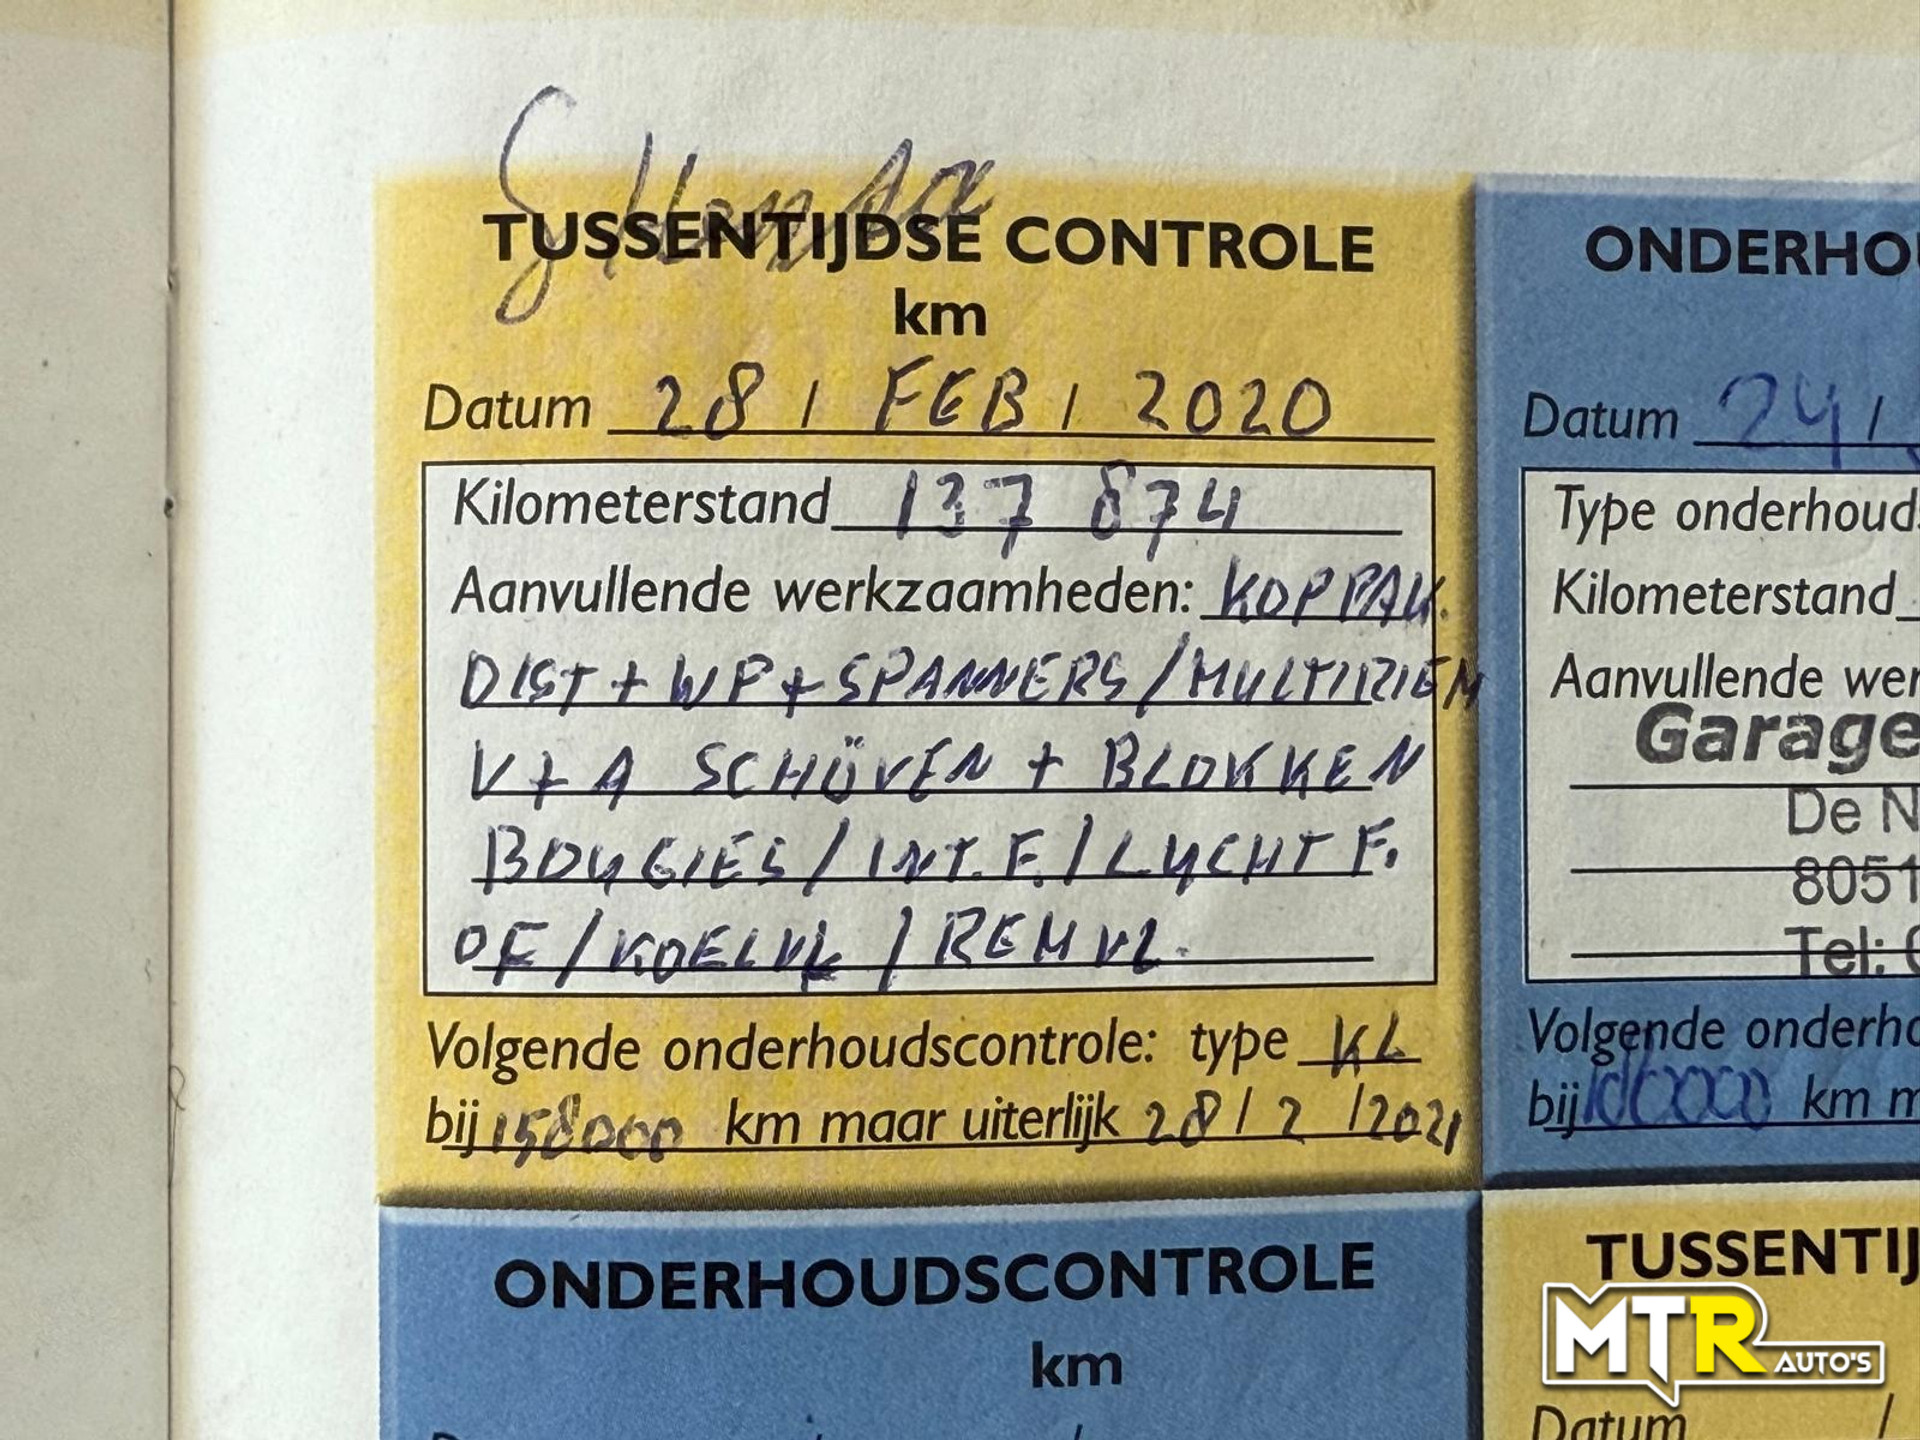 TUSSENTIJDSE CONTROLE
km
Datum 28 / FEB / 2020
Kilometerstand 137 874
Aanvullende werkzaamheden: KOPPAK.
DIST + WP + SPANNERS / MULTIRIEM
V + A SCHÜVEN + BLOKKEN
BOUGIES / INT. F. / LUCHT F.
OF / KOELVL / REMVL.
Volgende onderhoudscontrole: type KL
bij 158000 km maar uiterlijk 28 / 2 / 2021
ONDERHOU
Datum 24 /
Type onderhouds
Kilometerstand
Aanvullende wer
Garage
De N
8051
Tel: 0
Volgende onderho
bij km m
ONDERHOUDSCONTROLE
km
TUSSENTIJ
Datum /
MTR AUTO'S